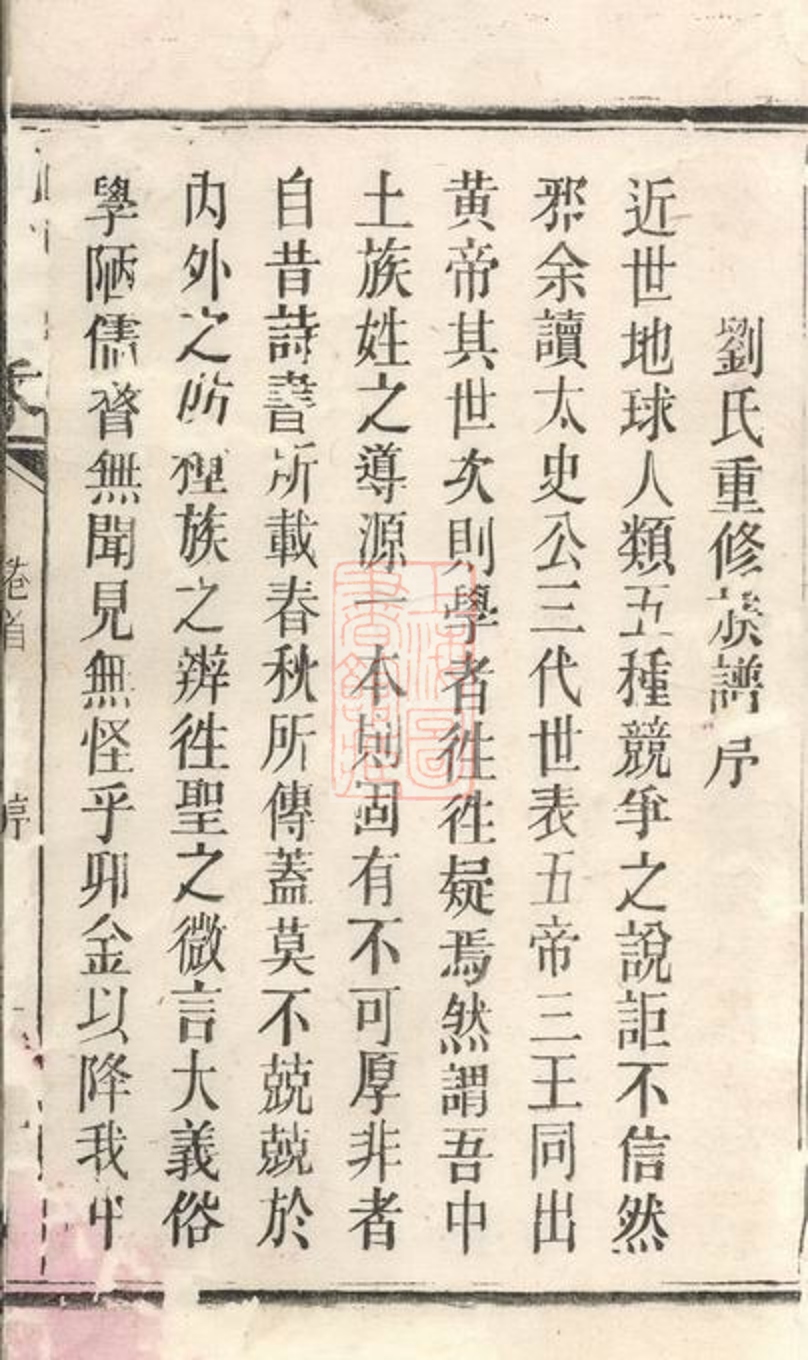 劉氏重修族譜序
近世地球人類五種競爭之說詎不信然
邪余讀太史公三代世表五帝三王同出
黃帝其世次則學者徃徃疑焉然謂吾中
土族姓之導源一本則固有不可厚非者
自昔詩書所載春秋所傳蓋莫不兢兢於
内外之防種族之辨徃聖之微言大義俗
學陋儒瞀無聞見無怪乎卯金以降我中
卷首
序